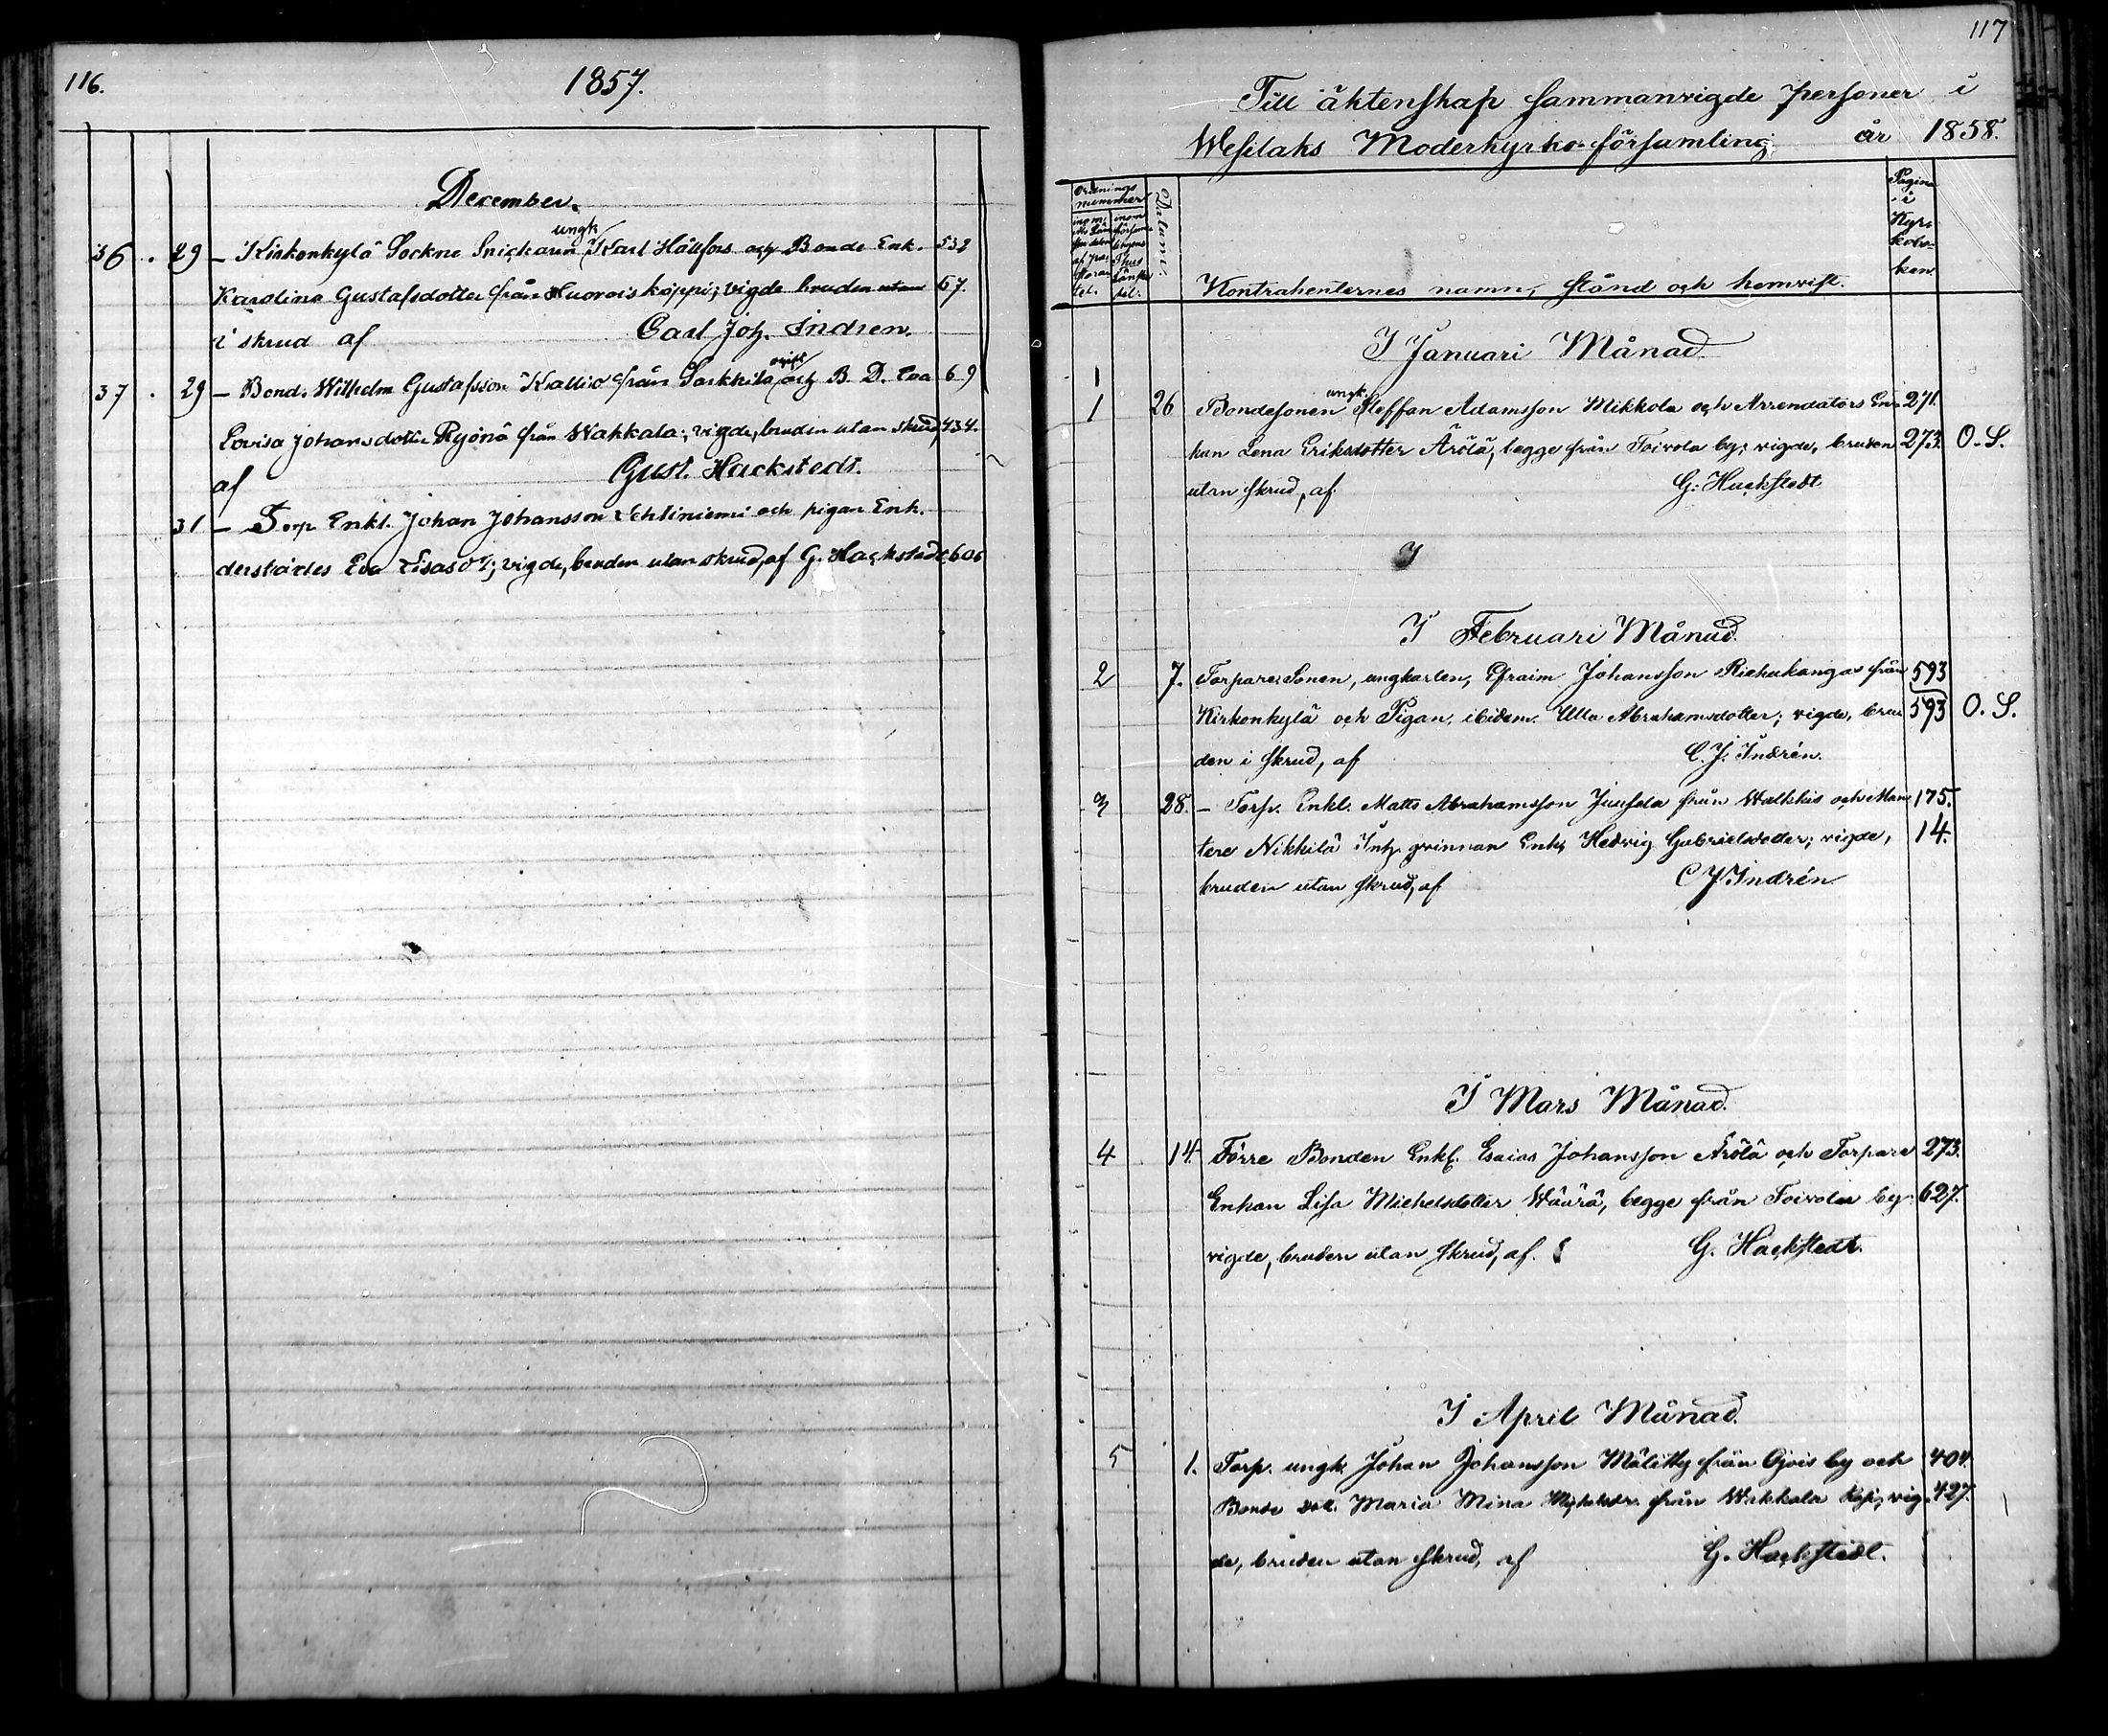 116.
1857.
December.
ungk
36 . 29 – Kirkonkylä Sockne Snickaren Karl Hällfors och Bonde Enk. 532
Karolina Gustafsdotter från Huorois koppi; vigde bruden utan 67.
i skrud af Carl Joh. Indren.
37 . 29 – Bond. Wilhelm Gustafsson Kallio från Sarkkila och B. D. Eva 69
Lovisa Johansdotter Ryönä från Wakkala; vigde, bruden utan skrud, 434.
af Gust. Hackstedt.
31 – Torp Enkl. Johan Johansson Lehtiniemi och pigan Enk.
Eva vigde, bruden utan skrud, af G. Hackstedt 606
117
Till äktenskap sammanvigde personer i
Wesilaks Moderkyrko-församling år 1858.
Ordnings nummer
Datum:
Kontrahenternes namn, stånd och hemvist.
Pagina i Kyrkoboken.
I Januari Månad
1
ungk.
1 26 Bondesonen Steffan Adamsson Mikkola och Arrendators En- 271.
kan Lena Eriksdotter Ärölä, begge från Toivola by; vigde, bruden 273. O. S.
utan skrud, af G. Hackstedt
I
I Februari Månad.
2 7. Torpare Sonen, ungkarlen, Efraim Johansson Riehukangas från 593
Kirkonkylä och Pigan, ibidem. Ulla Abrahamsdotter; vigde, bru 593 O. S.
den i skrud, af C. J. Indrén.
3 28. – Torp. Enkl. Matts Abrahamsson Juusela från Walkkis och Man 175.
tere Nikkilä Inh. qvinnan Enk. Hedvig Gabrielsdotter; vigde, 14.
bruden utan skrud, af C J Indrén
I Mars Månad.
4 14. Förre Bonden Enkl. Esaias Johansson Ärölä och Torpare 273.
Enkan Lisa Michelsdotter Wäärä, begge från Toivola by 627.
vigde, bruden utan skrud, af. G. Hackstedt.
I April Månad.
5 1. Torp. ungk. Johan Johansson Mälitty från Ojois by och 404.
Bonde dott. Maria Mina från Wakkala vig- 427.
de, bruden utan skrud, af G. Hackstedt.